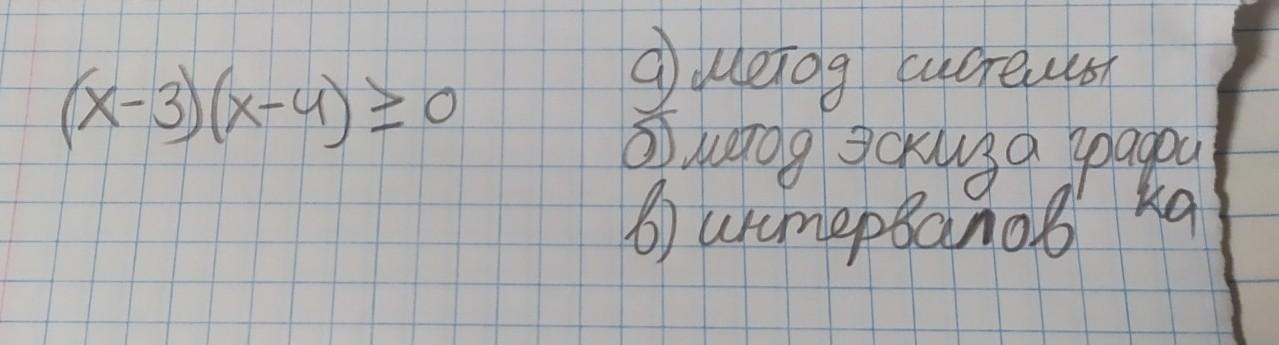 (x-3)(x-4) ≥ 0
а) метод системы
б) метод эскиза графи
ка
в) интервалов